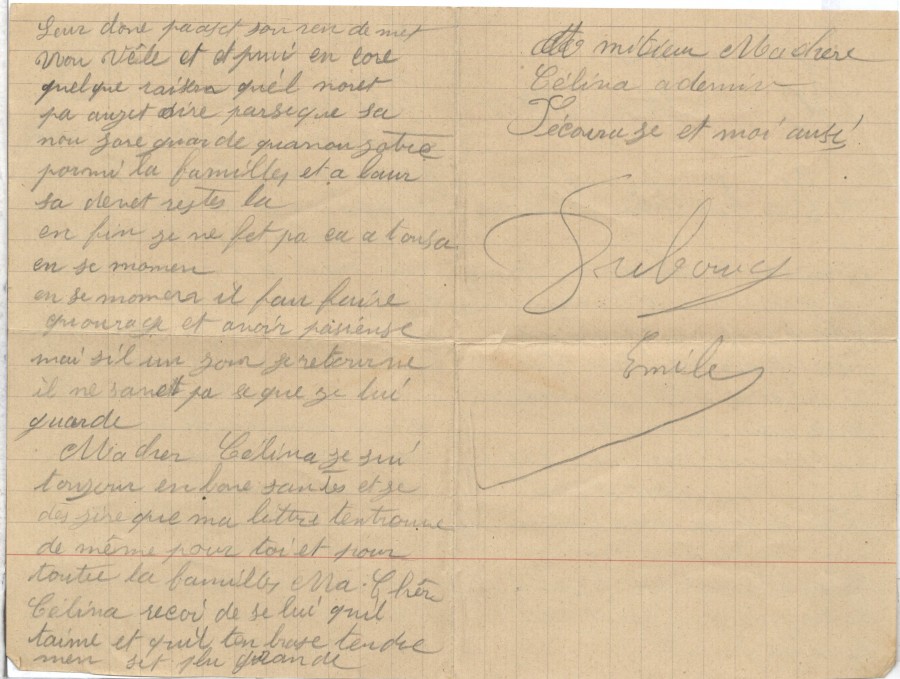 Leur done pa aset son ren de met
Mon Vête et d puui en core
quelque raiksn quél noret
pa auzet dire parseque sa
nou zore guarde quanou zotre
parmi la familles et a laur
sa devet restes la
en fin se ne fet pa ca a tousa
en se momen
en se momen il fau faire
quourage et avoir pasiense
mai sil un zour se retourne
il ne sauet pa se que ze lui
guarde
Ma cher Célina ze sui
touzour en bone santes et se
des zire que ma lettre tentrouve
de même pour toi et pour
toutte la familles Ma Chère
Célina recoi de se lui quil
taime et quil ten brase tendre
men sit plu grande
mitieu Ma chère
Célina ademin
Técoura ze et moi ausi
Duboug
Emile